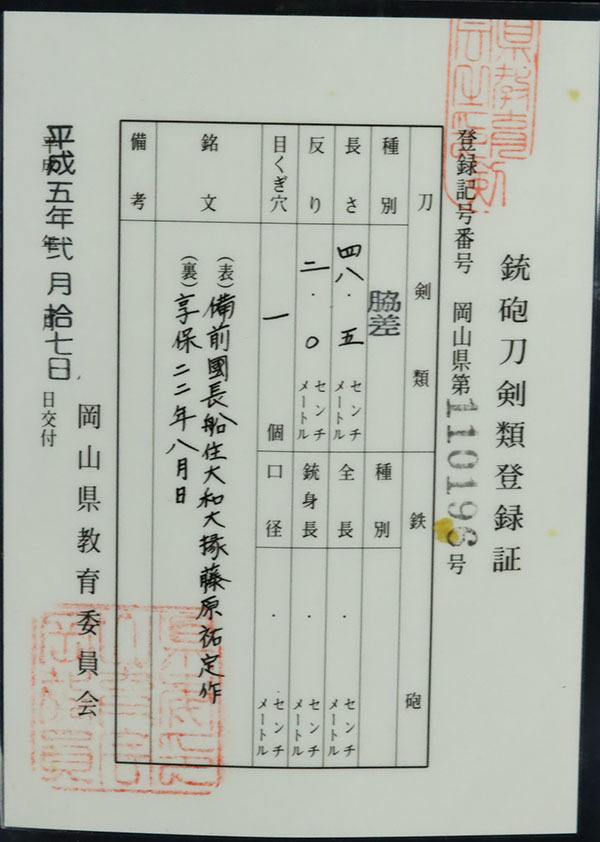 銃砲刀剣類登録証
登録記号番号 岡山県第110196号
刀剣類
鉄砲
種別 脇差
種別
長さ 四八.五 センチメートル
全長 . センチメートル
反り 二.〇 センチメートル
銃身長 . センチメートル
目くぎ穴 一 個
口径 . センチメートル
銘文
(表)備前國長船住大和大掾藤原祐定作
(裏)享保二二年八月日
備考
平成五年弐月拾七日 日交付
岡山県教育委員会